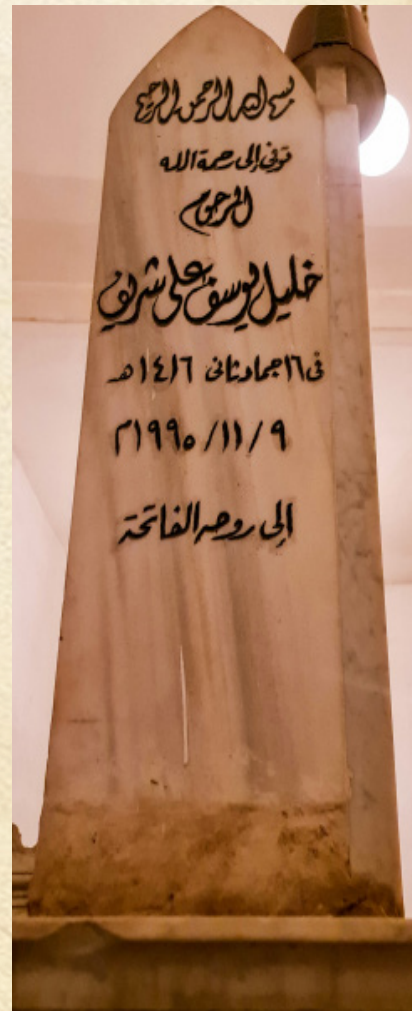 بسم الله الرحمن الرحيم
توفى إلى رحمة الله
المرحوم
خليل يوسف على شريف
فى ١٦ جماد ثانى ١٤١٦ هـ
٩ / ١١ / ١٩٩٥م
إلى روحه الفاتحة